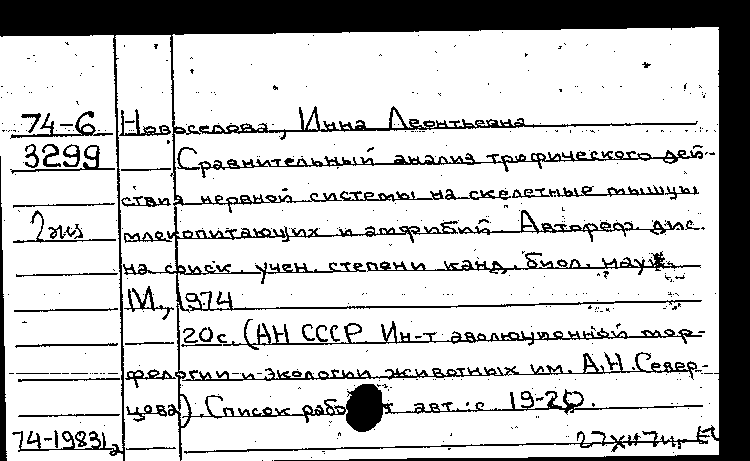 74-6 Новоселова, Инна Леонтьевна
3299 Сравнительный анализ трофического дей-
ствия нервной системы на скелетные мышцы
2 экз млекопитающих и амфибий Автореф. дис.
на соиск. учен. степени канд. биол. наук.
М., 1974
20с. (АН СССР Ин-т эволюционной мор-
фологии и экологии животных им. А.Н. Север-
цова). Список работ авт.: с 19-20.
74-19831
27 XII 74г.